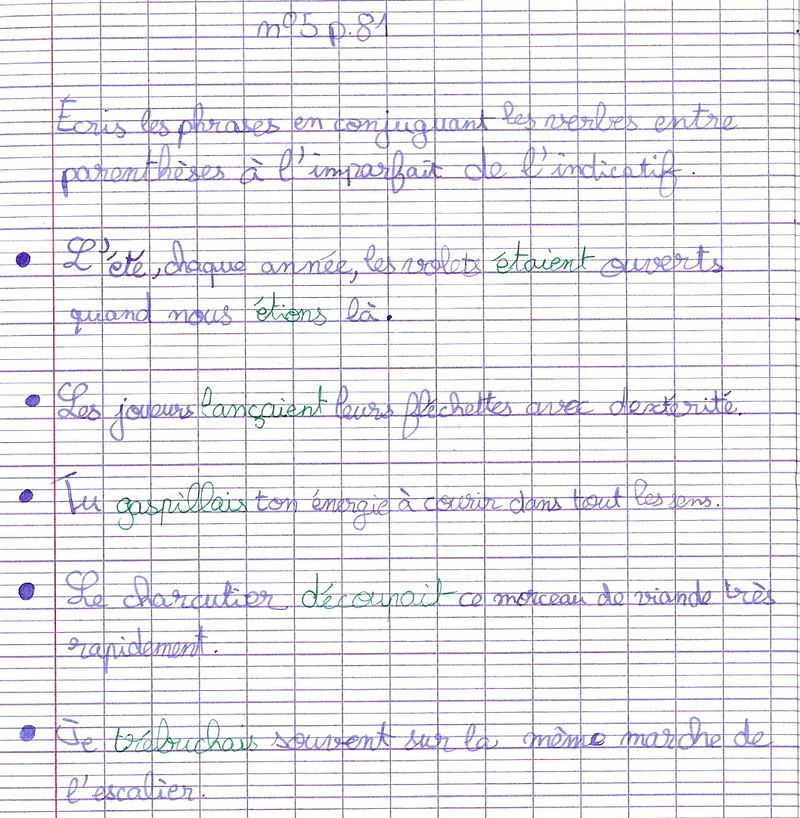 n°5 p.81
Écris les phrases en conjuguant les verbes entre
parenthèses à l'imparfait de l'indicatif.
L'été, chaque année, les volets étaient ouverts
quand nous étions là.
Les joueurs lançaient leurs fléchettes avec dextérité.
Tu gaspillais ton énergie à courir dans tout les sens.
Le charcutier découpait ce morceau de viande très
rapidement.
Je trébuchais souvent sur la même marche de
l'escalier.